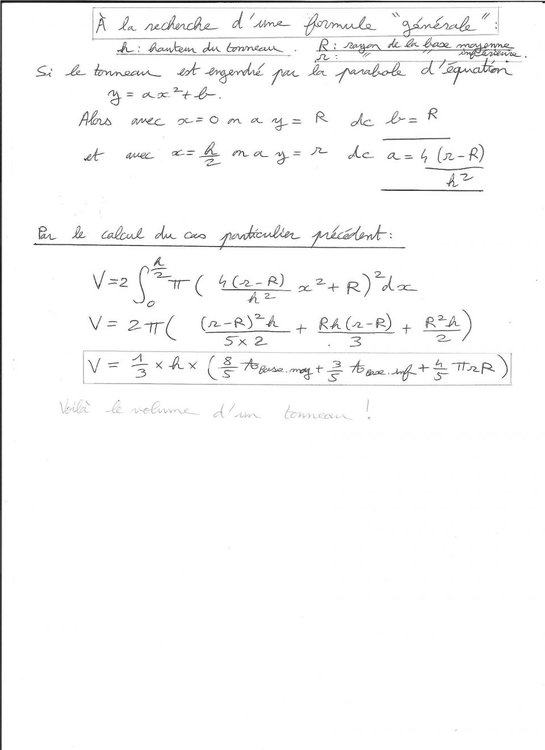 À la recherche d'une formule "générale" :
h : hauteur du tonneau. R : rayon de la base moyenne
r : " " " " inférieure.
Si le tonneau est engendré par la parabole d'équation
y = ax² + b.
Alors avec x = 0 on a y = R dc b = R
et avec x = h/2 on a y = r dc a = 4(r-R)/h²
Par le calcul du cas particulier précédent :
V = 2 ∫₀^(h/2) π ( 4(r-R)/h² x² + R )² dx
V = 2π ( (r-R)²h/(5×2) + Rh(r-R)/3 + R²h/2 )
V = 1/3 × h × ( 8/5 𝒜base.moy + 3/5 𝒜base.inf + 4/5 πrR )
Voilà le volume d'un tonneau !